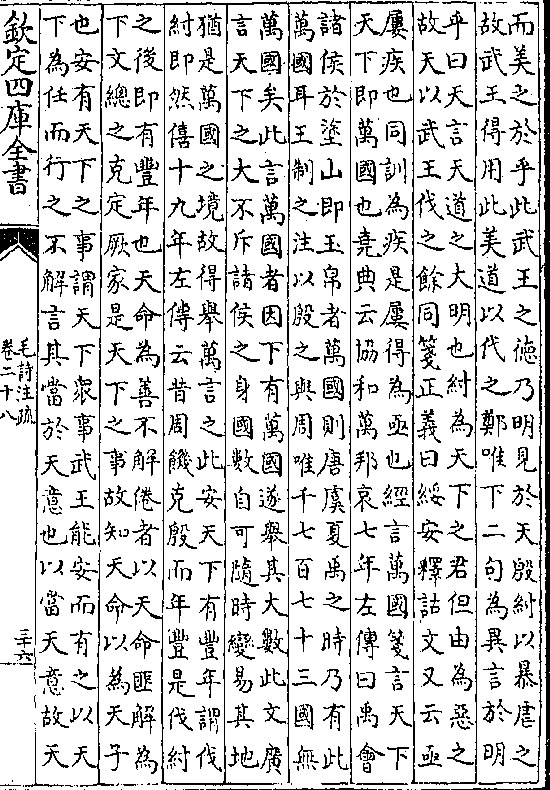 而美之於乎此武王之徳乃明見於天殷紂以暴虐之
故武王得用此美道以代之鄭唯下二句為異言於明
乎曰天言天道之大明也紂為天下之君但由為惡之
故天以武王伐之餘同箋正義曰綏安釋詁文又云亟
屢疾也同訓為疾是屢得為亟也經言萬國箋言天下
天下即萬國也堯典云協和萬邦哀七年左傳曰禹會
諸侯於塗山即玉帛者萬國則唐虞夏禹之時乃有此
萬國耳王制之注以殷之與周唯千七百七十三國無
萬國矣此言萬國者因下有萬國遂舉其大數此文廣
言天下之大不斥諸侯之身國數自可隨時變易其地
猶是萬國之境故得舉萬言之此安天下有豐年謂伐
紂即然僖十九年左傳云昔周饑克殷而年豐是伐紂
之後即有豐年也天命為善不解倦者以天命匪解為
下文總之克定厥家是天下之事故知天命以為天子
也安有天下之事謂天下衆事武王能安而有之以天
下為任而行之不解言其當於天意也以當天意故天
欽定四庫全書
毛詩注疏
卷二十八
三十六